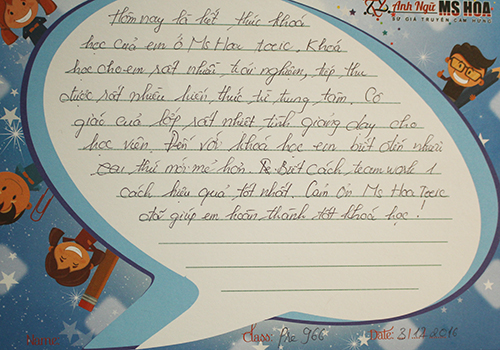 Anh Ngữ MS HOA
SỨ GIẢ TRUYỀN CẢM HỨNG
Hôm nay là kết thúc khoá
học của em ở Ms Hoa Toeic. Khoá
học cho em rất nhiều trải nghiệm, tiếp thu
được rất nhiều kiến thức từ trung tâm. Cô
giáo của lớp rất nhiệt tình giảng dạy cho
học viên. Đến với khoá học em biết đến nhiều
thứ mới mẻ hơn. Biết cách teamwork 1
cách hiệu quả tốt nhất. Cảm ơn Ms Hoa Toeic
đã giúp em hoàn thành tốt khoá học!
Name: Class: Pre 966 Date: 31.12.2016